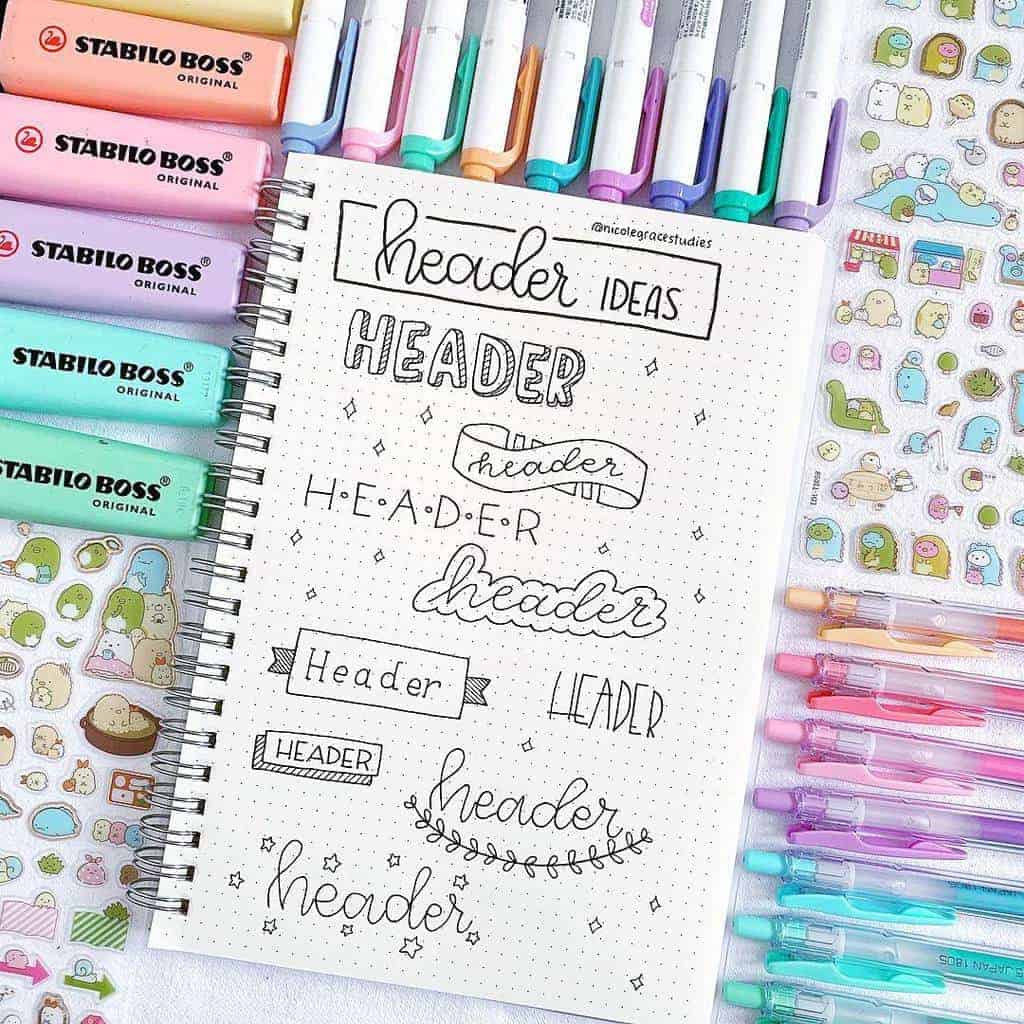 STABILO BOSS®
ORIGINAL
STABILO BOSS®
ORIGINAL
STABILO BOSS®
ORIGINAL
STABILO BOSS®
ORIGINAL
STABILO BOSS®
ORIGINAL
@nicolegracestudies
header IDEAS
HEADER
header
H•E•A•D•E•R
header
Header
HEADER
HEADER
header
header
JAPAN 1805